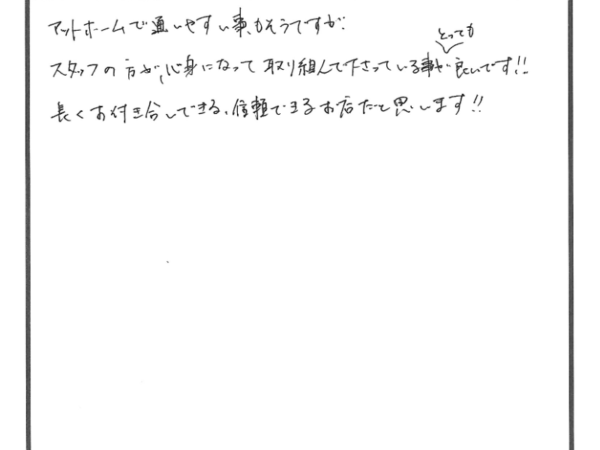 アットホームで通いやすい事もそうですが、
スタッフの方が、心身になって取り組んで下さっている事がとっても良いです!!
長くお付き合いできる、信頼できるお店だと思います!!